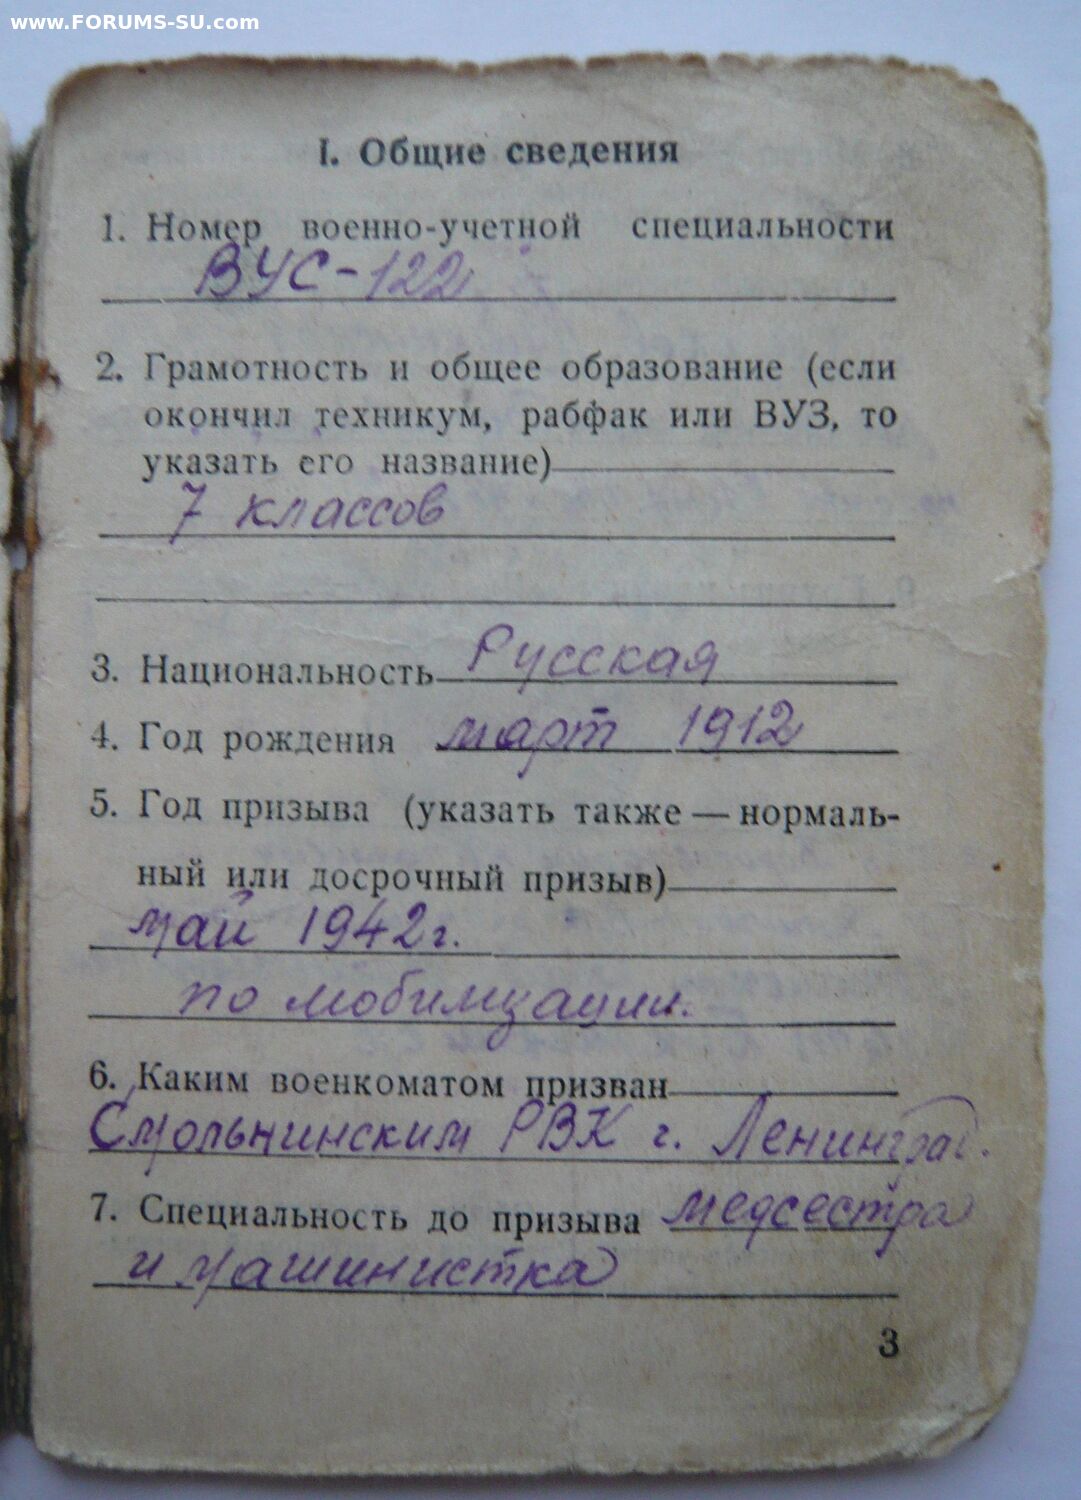 www.FORUMS-SU.com
I. Общие сведения
1. Номер военно-учетной специальности
ВУС-122
2. Грамотность и общее образование (если
окончил техникум, рабфак или ВУЗ, то
указать его название)
7 классов
3. Национальность Русская
4. Год рождения март 1912
5. Год призыва (указать также — нормаль-
ный или досрочный призыв)
май 1942 г.
по мобилизации.
6. Каким военкоматом призван
Смольнинским РВК г. Ленинград.
7. Специальность до призыва медсестра
и машинистка
3